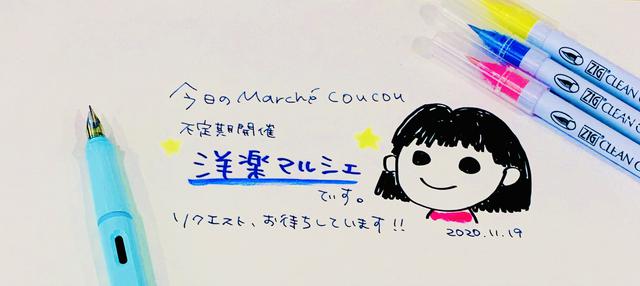 今日のMarché coucou
不定期開催
洋楽マルシェ
でぃす。
リクエスト、お待ちしています!!
2020.11.19
ZIG CLEAN C
ZIG CLEAN
ZIG CLEAN